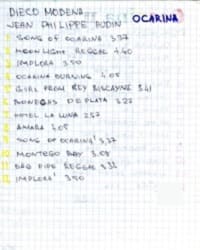 DIECO MODENA
JEAN PHILIPPE AUDIN OCARINA
1 SONG OF OCARINA 3.37
2 MOON LIGHT REGGAE 4.40
3 IMPLORA 3.50
4 OCARINA BURNING 4.05
5 GIRL FROM KEY BISCAYNE 3.41
6 BONEGAS DE PLATA 3.27
7 HOTEL LA LUNA 2.57
8 AMARA 4.05
9 SONG OF OCARINA' 3,37
10 MONTEGO BAY 3.08
11 BAG PIPE REGGAE 3.32
12 IMPLORA' 3.50